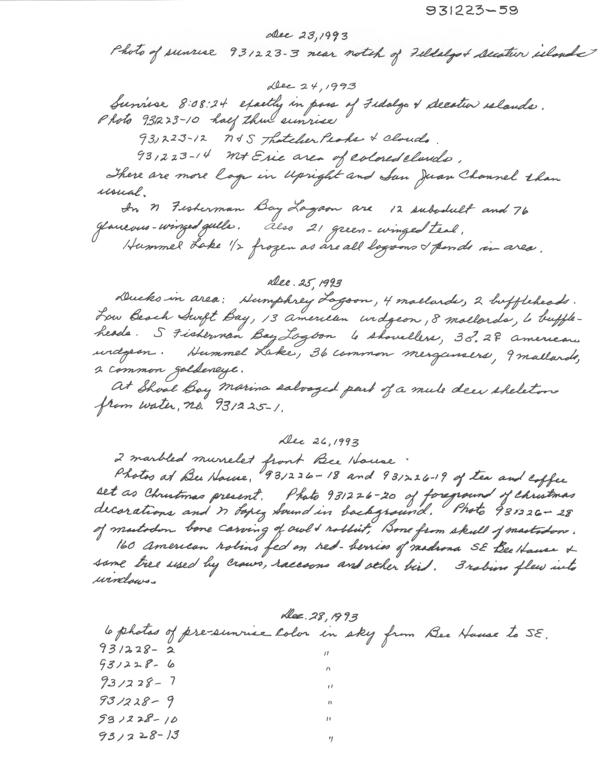 931223-59
Dec 23, 1993
Photo of sunrise 931223-3 near notch of Fidalgo & Decatur islands
Dec 24, 1993
Sunrise 8:08:24 exactly in pass of Fidalgo & Decatur islands.
Photo 931223-10 half thru sunrise
931223-12 N & S Thatcher Peaks & clouds.
931223-14 Mt Eric area of colored clouds.
There are more logs in Upright and San Juan Channel than
usual.
In N Fisherman Bay Lagoon are 12 subadult and 76
glaucous-winged gulls. Also 21 green-winged teal.
Hummel Lake 1/2 frozen as are all lagoons & ponds in area.
Dec. 25, 1993
Ducks in area: Humphrey Lagoon, 4 mallards, 2 buffleheads.
Low Beach Swift Bay, 13 American widgeon, 8 mallards, 6 buffle-
heads. S Fisherman Bay Lagoon 6 shovellers, 38, 28 american
widgeon. Hummel Lake, 36 common mergansers, 9 mallards,
2 common goldeneye.
At Shoal Bay Marina salvaged part of a mule deer skeleton
from water, no. 931225-1.
Dec 26, 1993
2 marbled murrelet front Bee House.
Photos at Bee House, 931226-18 and 931226-19 of tea and coffee
set as Christmas present. Photo 931226-20 of foreground of Christmas
decorations and N Lopez Sound in background. Photo 931226-28
of mastodon bone carving of owl & rabbit. Bone from skull of mastodon.
160 American robins fed on red-berries of madrona SE Bee House &
same tree used by crows, raccoons and other bird. 3 robins flew into
windows.
Dec. 28, 1993
6 photos of pre-sunrise color in sky from Bee House to SE.
931228-2 "
931228-6 "
931228-7 "
931228-9 "
931228-10 "
931228-13 "